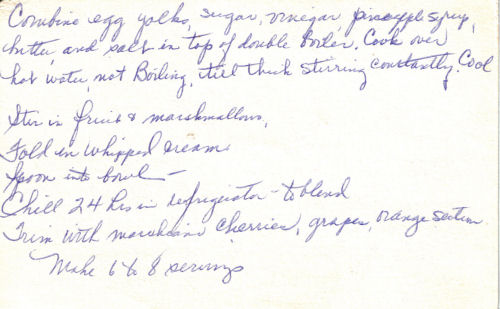 Combine egg yolks, sugar, vinegar pineapple syrup,
butter, and salt in top of double boiler. Cook over
hot water, not Boiling, till thick stirring constantly. Cool
Stir in fruit & marshmallows,
Fold in whipped cream
Spoon into bowl -
Chill 24 hrs in refrigerator - to blend
Trim with maraschino cherries, grapes, orange section
Make 6 to 8 servings